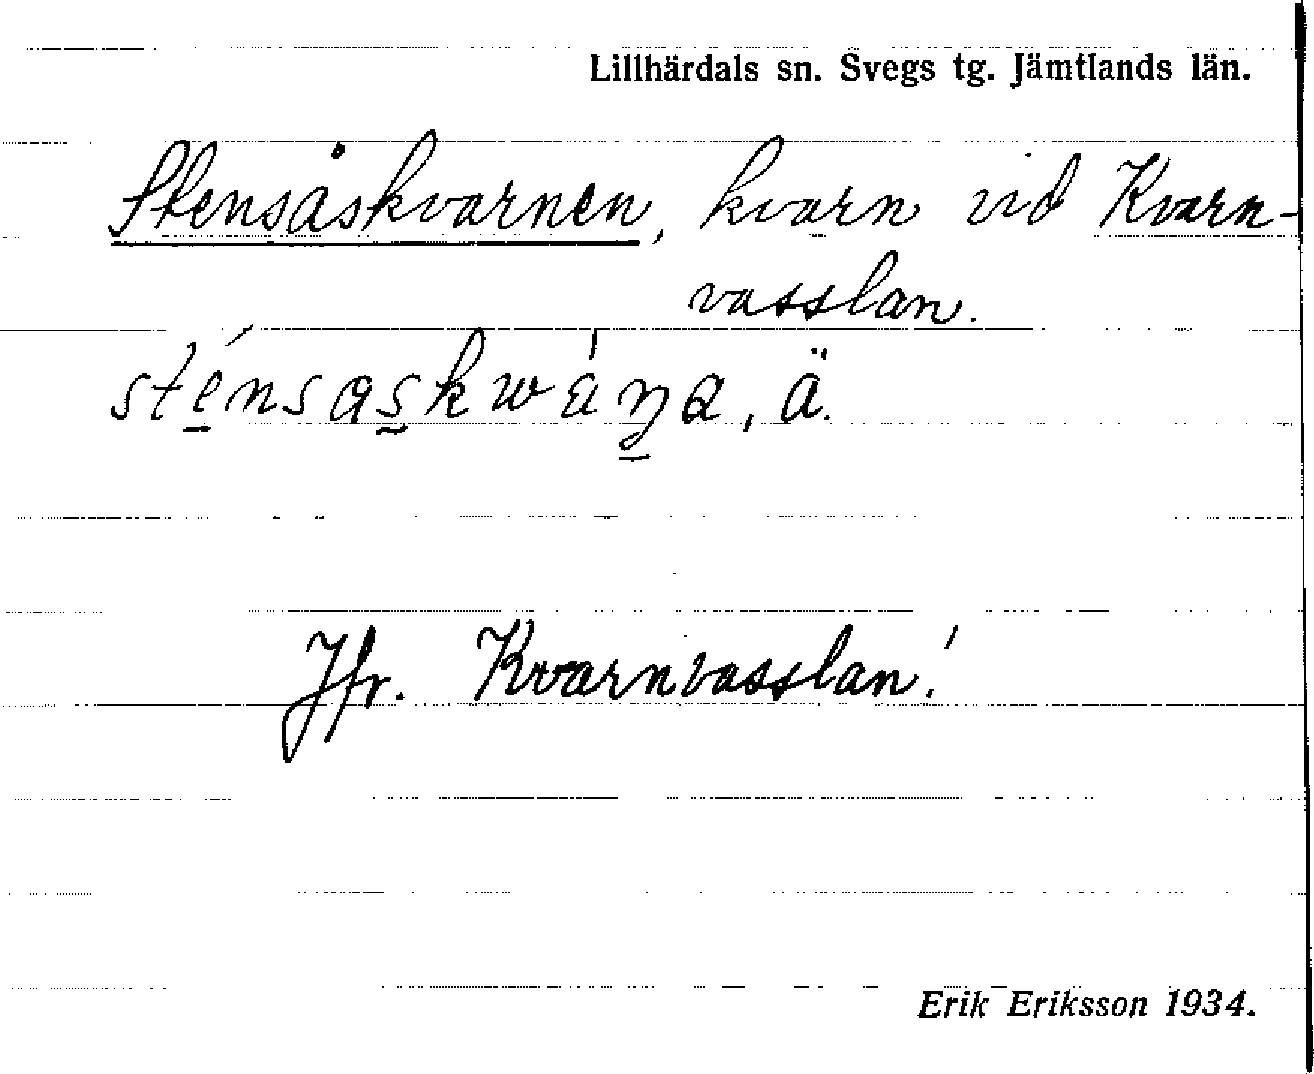 Lillhärdals sn. Svegs tg. Jämtlands län.
Stensåskvarnen, kvarn vid Kvarn-
vasslan.
sténsaskwáṉa, ä.
Jfr. Kvarnvasslan!
Erik Eriksson 1934.